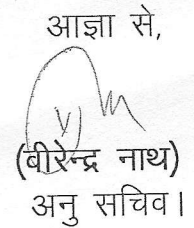 आज्ञा से,
(बीरेन्द्र नाथ)
अनु सचिव।